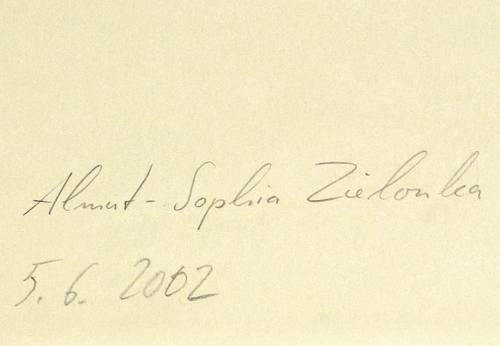 Almut-Sophia Zielonka
5.6. 2002